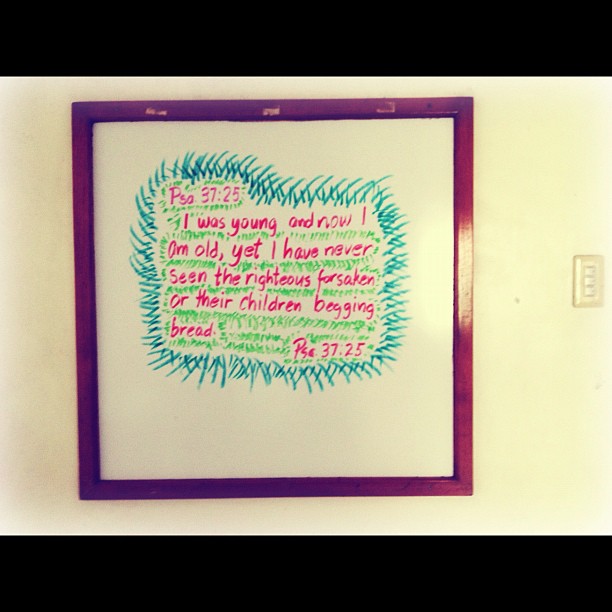 Psa. 37:25
I was young and now I
am old, yet I have never
seen the righteous forsaken
or their children begging
bread.
Psa. 37:25